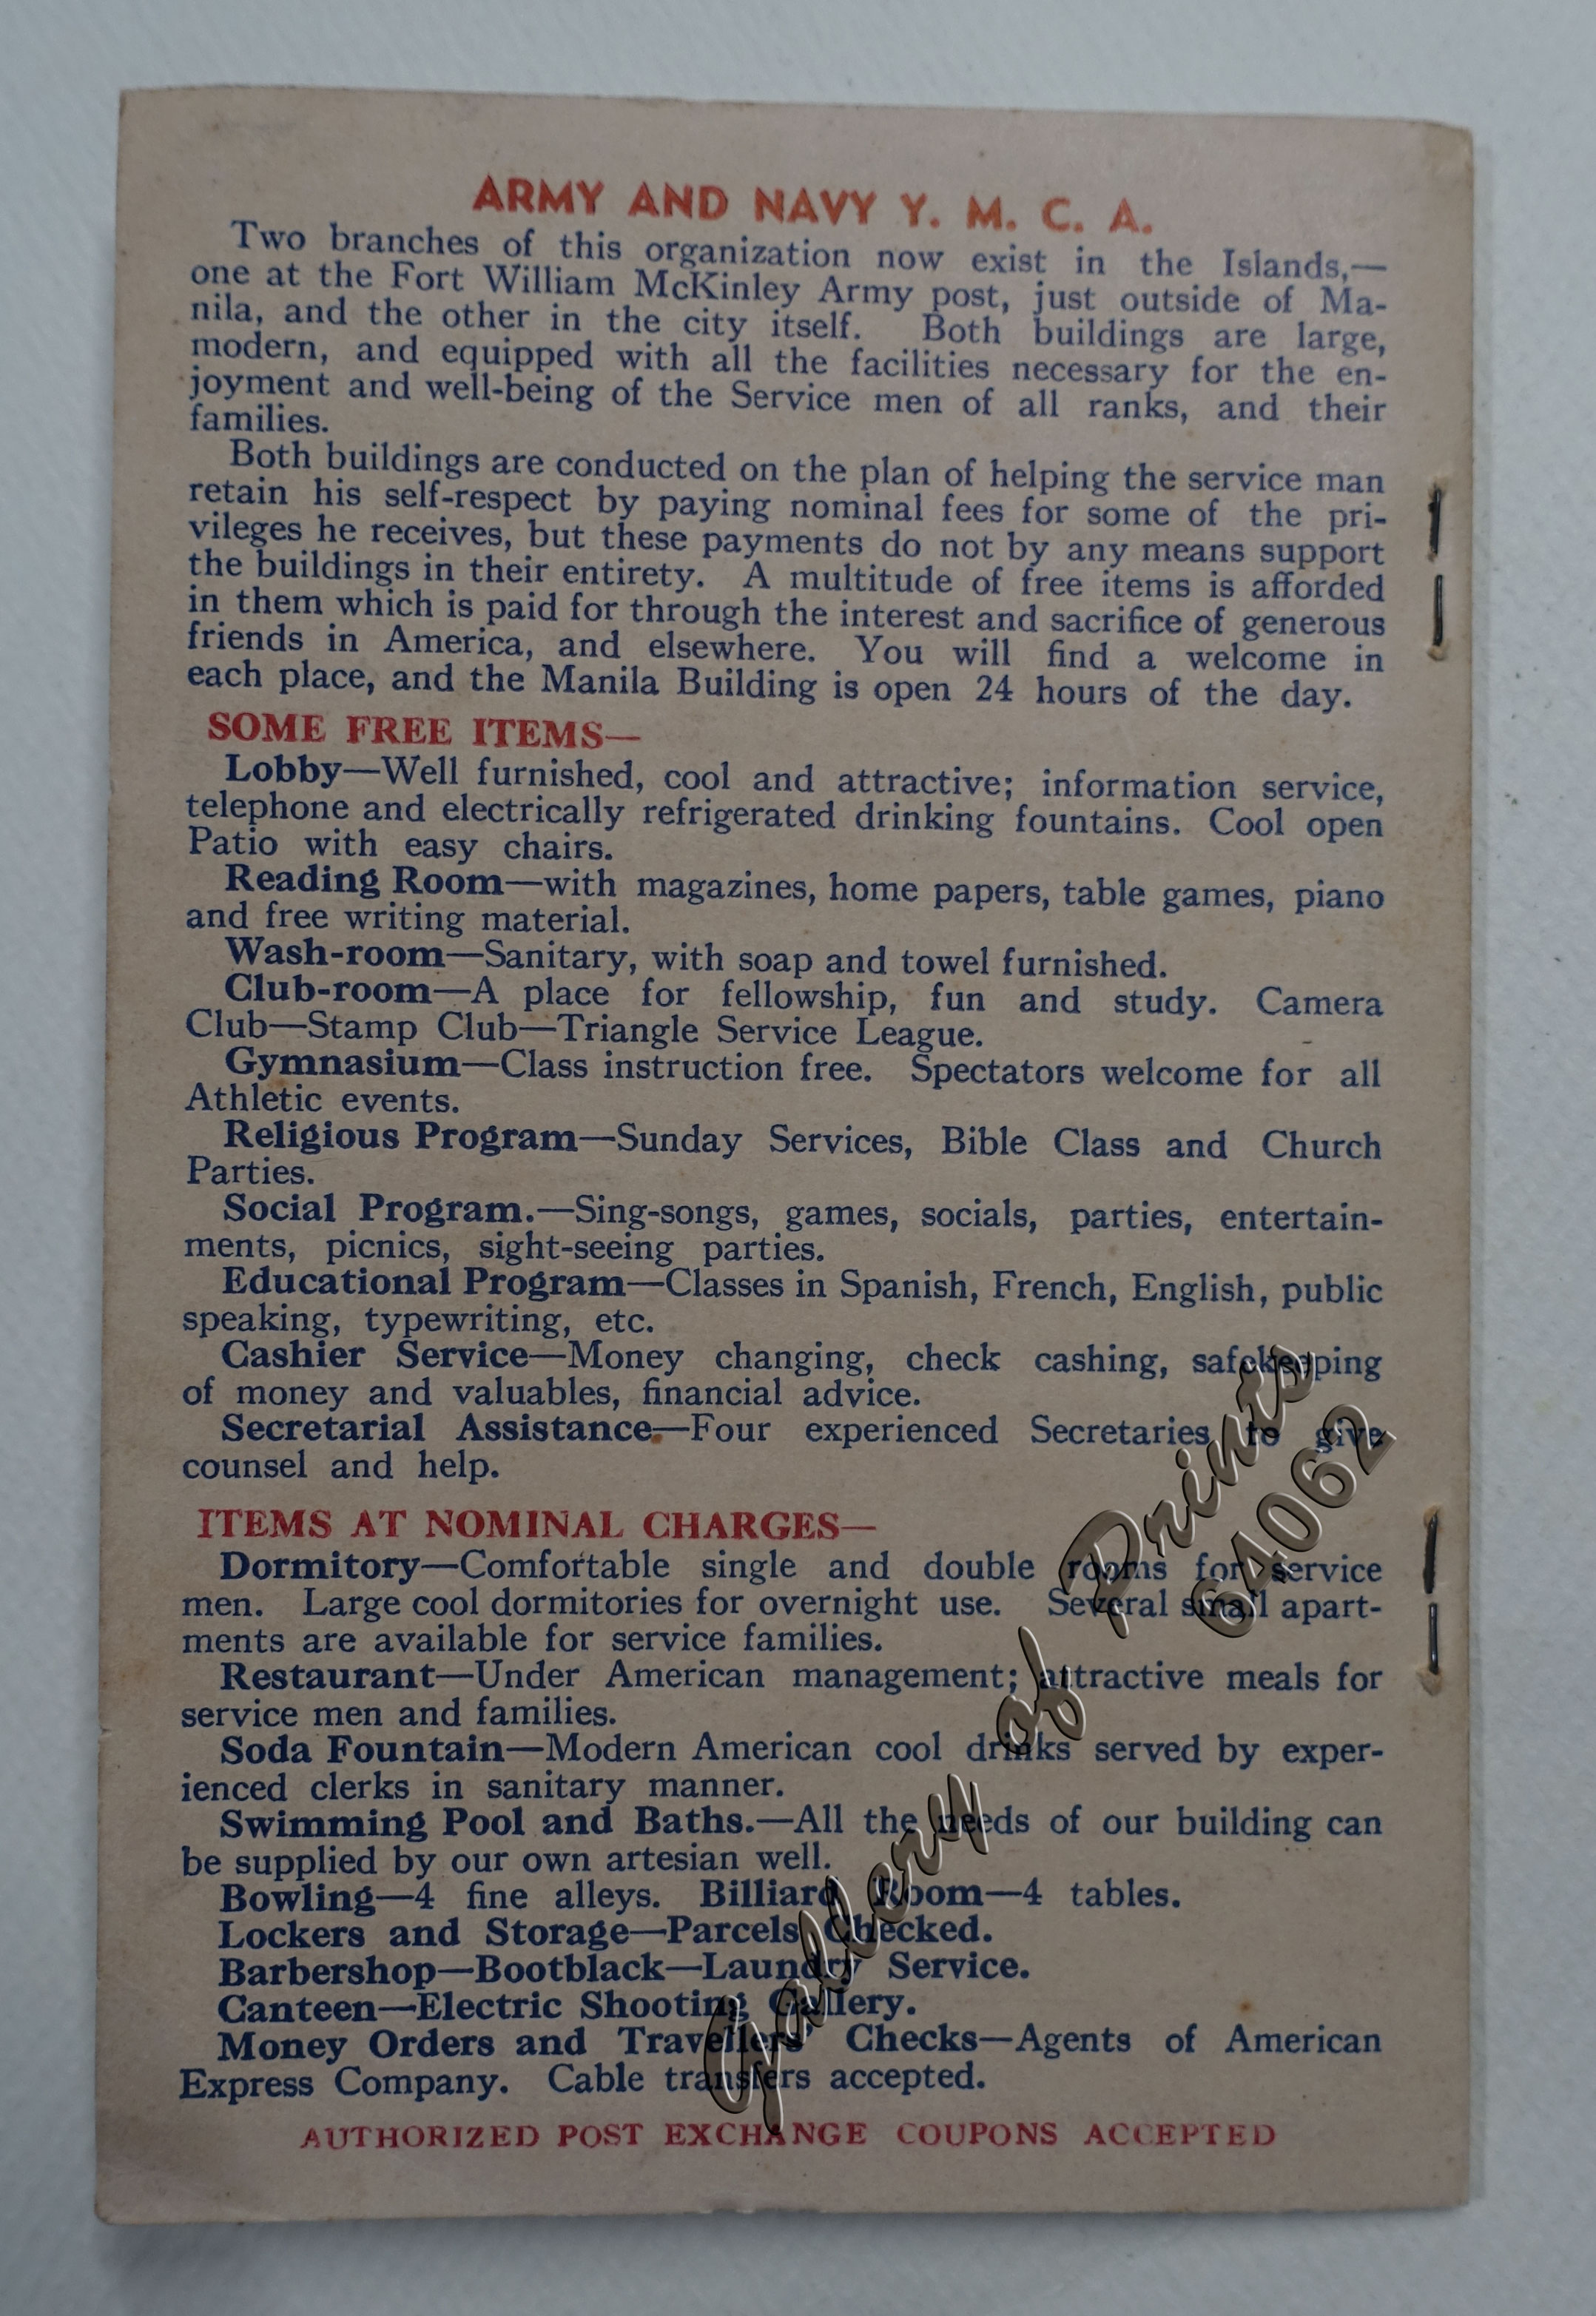 ARMY AND NAVY Y. M. C. A.
Two branches of this organization now exist in the Islands,—
one at the Fort William McKinley Army post, just outside of Ma-
nila, and the other in the city itself. Both buildings are large,
modern, and equipped with all the facilities necessary for the en-
joyment and well-being of the Service men of all ranks, and their
families.
Both buildings are conducted on the plan of helping the service man
retain his self-respect by paying nominal fees for some of the pri-
vileges he receives, but these payments do not by any means support
the buildings in their entirety. A multitude of free items is afforded
in them which is paid for through the interest and sacrifice of generous
friends in America, and elsewhere. You will find a welcome in
each place, and the Manila Building is open 24 hours of the day.
SOME FREE ITEMS—
Lobby—Well furnished, cool and attractive; information service,
telephone and electrically refrigerated drinking fountains. Cool open
Patio with easy chairs.
Reading Room—with magazines, home papers, table games, piano
and free writing material.
Wash-room—Sanitary, with soap and towel furnished.
Club-room—A place for fellowship, fun and study. Camera
Club—Stamp Club—Triangle Service League.
Gymnasium—Class instruction free. Spectators welcome for all
Athletic events.
Religious Program—Sunday Services, Bible Class and Church
Parties.
Social Program.—Sing-songs, games, socials, parties, entertain-
ments, picnics, sight-seeing parties.
Educational Program—Classes in Spanish, French, English, public
speaking, typewriting, etc.
Cashier Service—Money changing, check cashing, safekeeping
of money and valuables, financial advice.
Secretarial Assistance—Four experienced Secretaries to give
counsel and help.
ITEMS AT NOMINAL CHARGES—
Dormitory—Comfortable single and double rooms for service
men. Large cool dormitories for overnight use. Several small apart-
ments are available for service families.
Restaurant—Under American management; attractive meals for
service men and families.
Soda Fountain—Modern American cool drinks served by exper-
ienced clerks in sanitary manner.
Swimming Pool and Baths.—All the needs of our building can
be supplied by our own artesian well.
Bowling—4 fine alleys. Billiard Room—4 tables.
Lockers and Storage—Parcels Checked.
Barbershop—Bootblack—Laundry Service.
Canteen—Electric Shooting Gallery.
Money Orders and Travellers' Checks—Agents of American
Express Company. Cable transfers accepted.
AUTHORIZED POST EXCHANGE COUPONS ACCEPTED
Gallery of Prints
64062